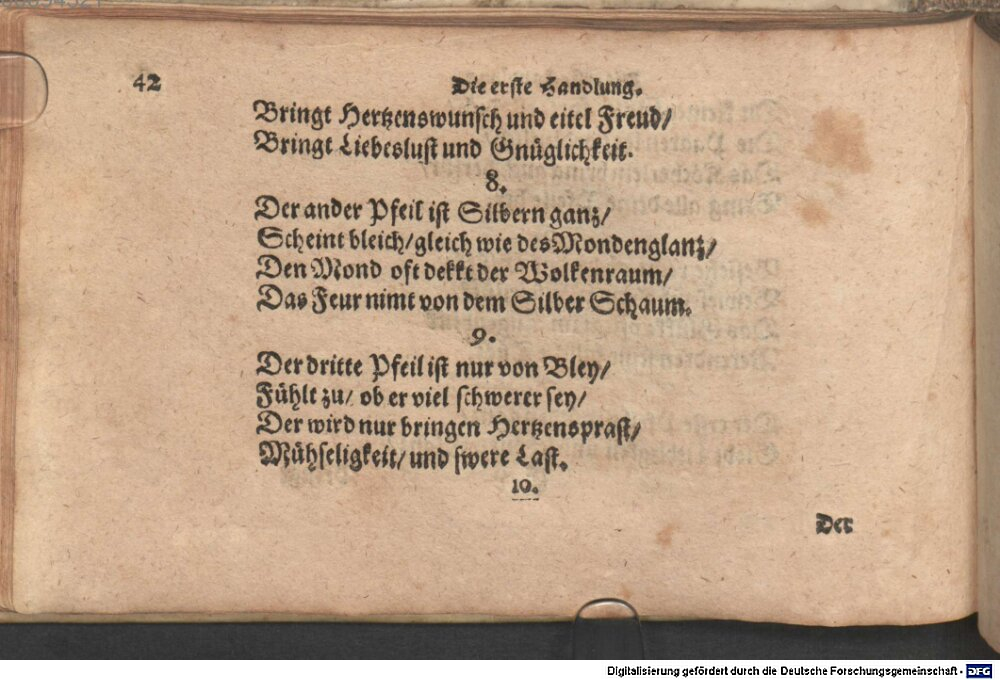 42
Die erste Handlung.
Bringt Hertzenswunsch und eitel Freud/
Bringt Liebeslust und Gnüglichkeit.
8.
Der ander Pfeil ist Silbern ganz/
Scheint bleich/gleich wie des Mondenglanz/
Den Mond oft dekkt der Wolkenraum/
Das Feur nimt von dem Silber Schaum.
9.
Der dritte Pfeil ist nur von Bley/
Fühlt zu/ ob er viel schwerer sey/
Der wird nur bringen Hertzensprast/
Mühseligkeit/ und swere Last.
10.
Der
Digitalisierung gefördert durch die Deutsche Forschungsgemeinschaft - DFG